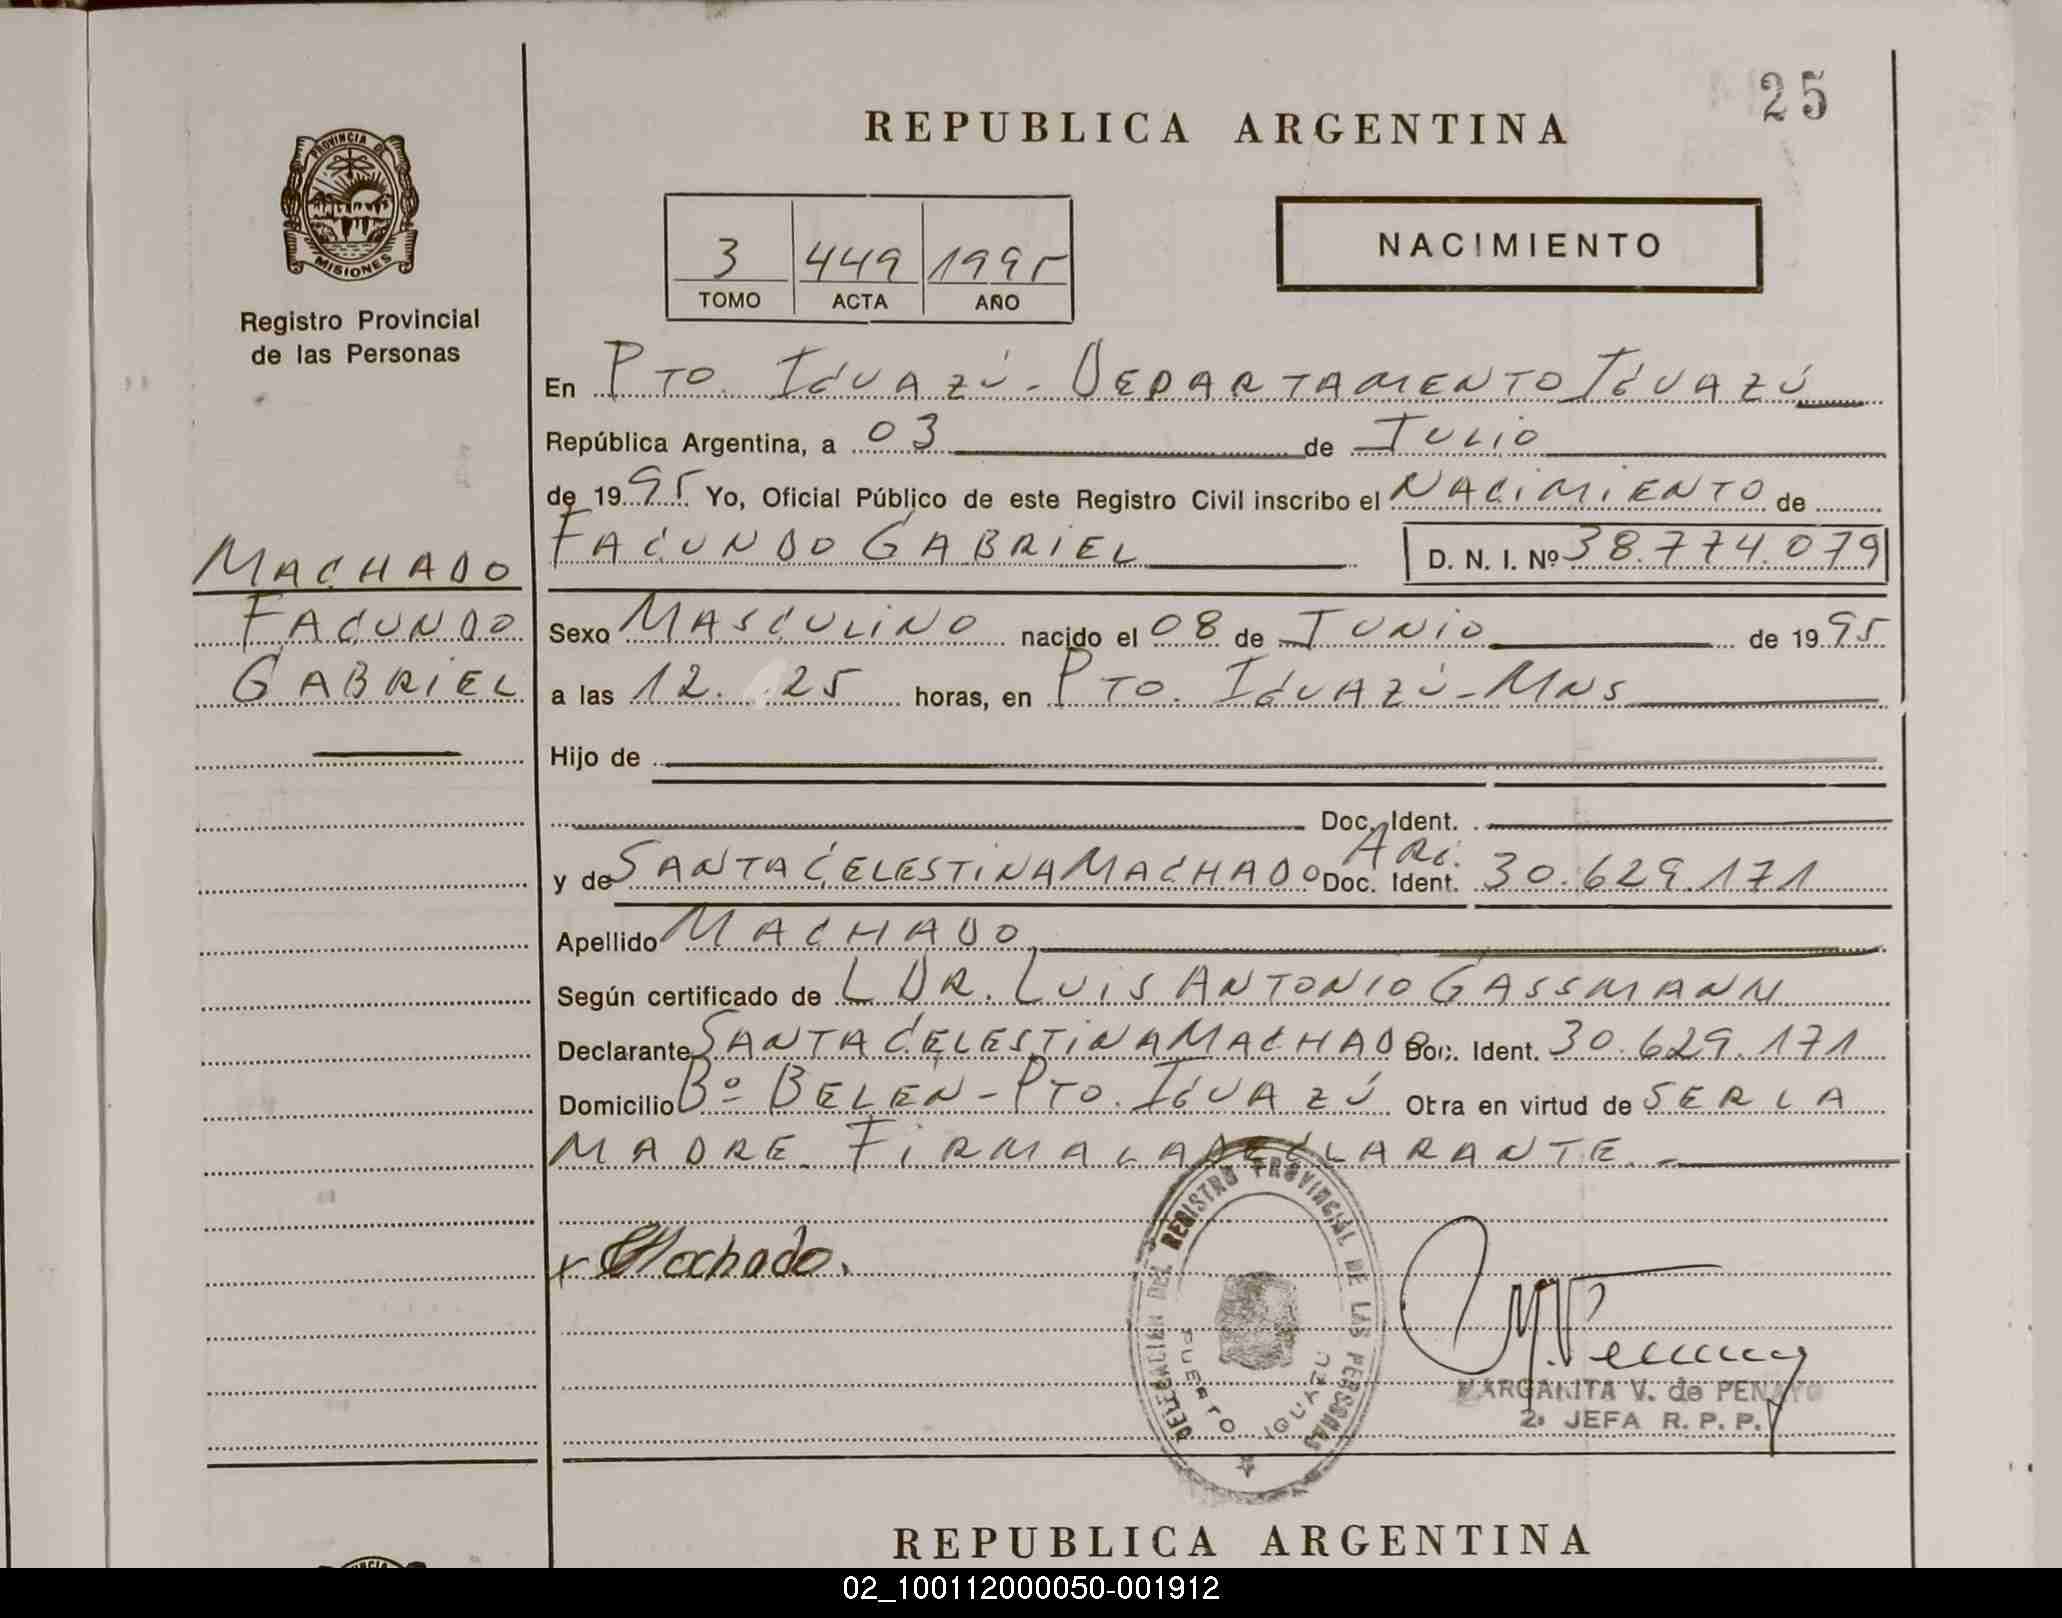 25
REPUBLICA ARGENTINA
PROVINCIA DE
MISIONES
Registro Provincial
de las Personas
3 449 1995
TOMO ACTA AÑO
NACIMIENTO
En PTO. IGUAZÚ - DEPARTAMENTO IGUAZÚ
República Argentina, a 03 de JULIO
de 1995 Yo, Oficial Público de este Registro Civil inscribo el NACIMIENTO de
FACUNDO GABRIEL D. N. I. Nº 38.774.079
MACHADO
FACUNDO
GABRIEL
Sexo MASCULINO nacido el 08 de JUNIO de 1995
a las 12. 25 horas, en PTO. IGUAZÚ - MNS
Hijo de
Doc. Ident.
y de SANTA CELESTINA MACHADO Doc. Ident. ARG. 30.629.171
Apellido MACHADO
Según certificado de L DR. LUIS ANTONIO GASSMANN
Declarante SANTA CELESTINA MACHADO Doc. Ident. 30.629.171
Domicilio Bº BELEN - PTO. IGUAZÚ Obra en virtud de SER LA
MADRE. FIRMA LA DECLARANTE. -
x Machado.
DELEGACION DEL REGISTRO PROVINCIAL DE LAS PERSONAS
PUERTO IGUAZU
MARGARITA V. de PENAYO
2ª JEFA R. P. P.
REPUBLICA ARGENTINA
02_100112000050-001912